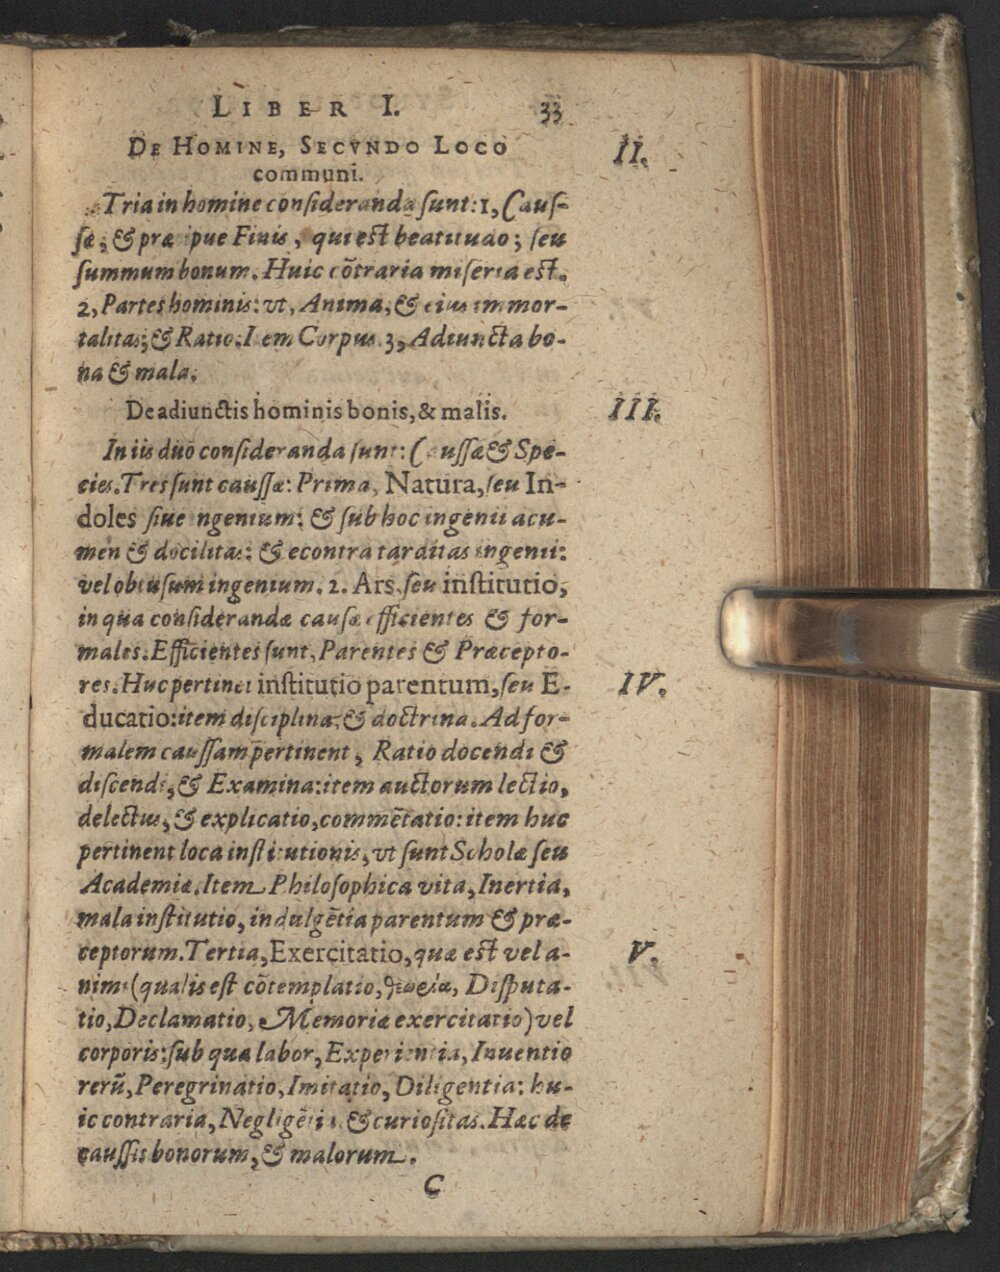 LIBER I. 33
DE HOMINE, SECVNDO LOCO II.
communi.
Tria in homine consideranda sunt: 1, Caus-
sæ, & præcipue Finis, qui est beatitudo; seu
summum bonum. Huic cõtraria miseria est.
2, Partes hominis: vt, Anima, & eius immor-
talitas; & Ratio. Item Corpus 3, Adiuncta bo-
na & mala.
De adiunctis hominis bonis, & malis. III.
In iis duo consideranda sunt: Caussæ & Spe-
cies. Tres sunt caussæ: Prima, Natura, seu In-
doles siue ngenium: & sub hoc ingenii acu-
men & docilitas: & econtra tarditas ingenii:
vel obtusum ingenium. 2. Ars, seu institutio,
in qua considerandæ causæ efficientes & for-
males. Efficientes sunt, Parentes & Præcepto-
res. Huc pertinet institutio parentum, seu E- IV.
ducatio: item disciplina, & doctrina. Ad for-
malem caussam pertinent, Ratio docendi &
discendi, & Examina: item auctorum lectio,
delectus, & explicatio, commẽtatio: item huc
pertinent loca institutionis, vt sunt Scholæ seu
Academiæ. Item Philosophica vita, Inertia,
mala institutio, indulgẽtia parentum & præ-
ceptorum. Tertia, Exercitatio, quæ est vel a- V.
nimi (qualis est cõtemplatio, θεωρία, Disputa-
tio, Declamatio, Memoriæ exercitatio) vel
corporis: sub qua labor, Experientia, Inuentio
rerũ, Peregrinatio, Imitatio, Diligentia: hu-
ic contraria, Negligẽtia & curiositas. Hæc de
caussis bonorum, & malorum.
C